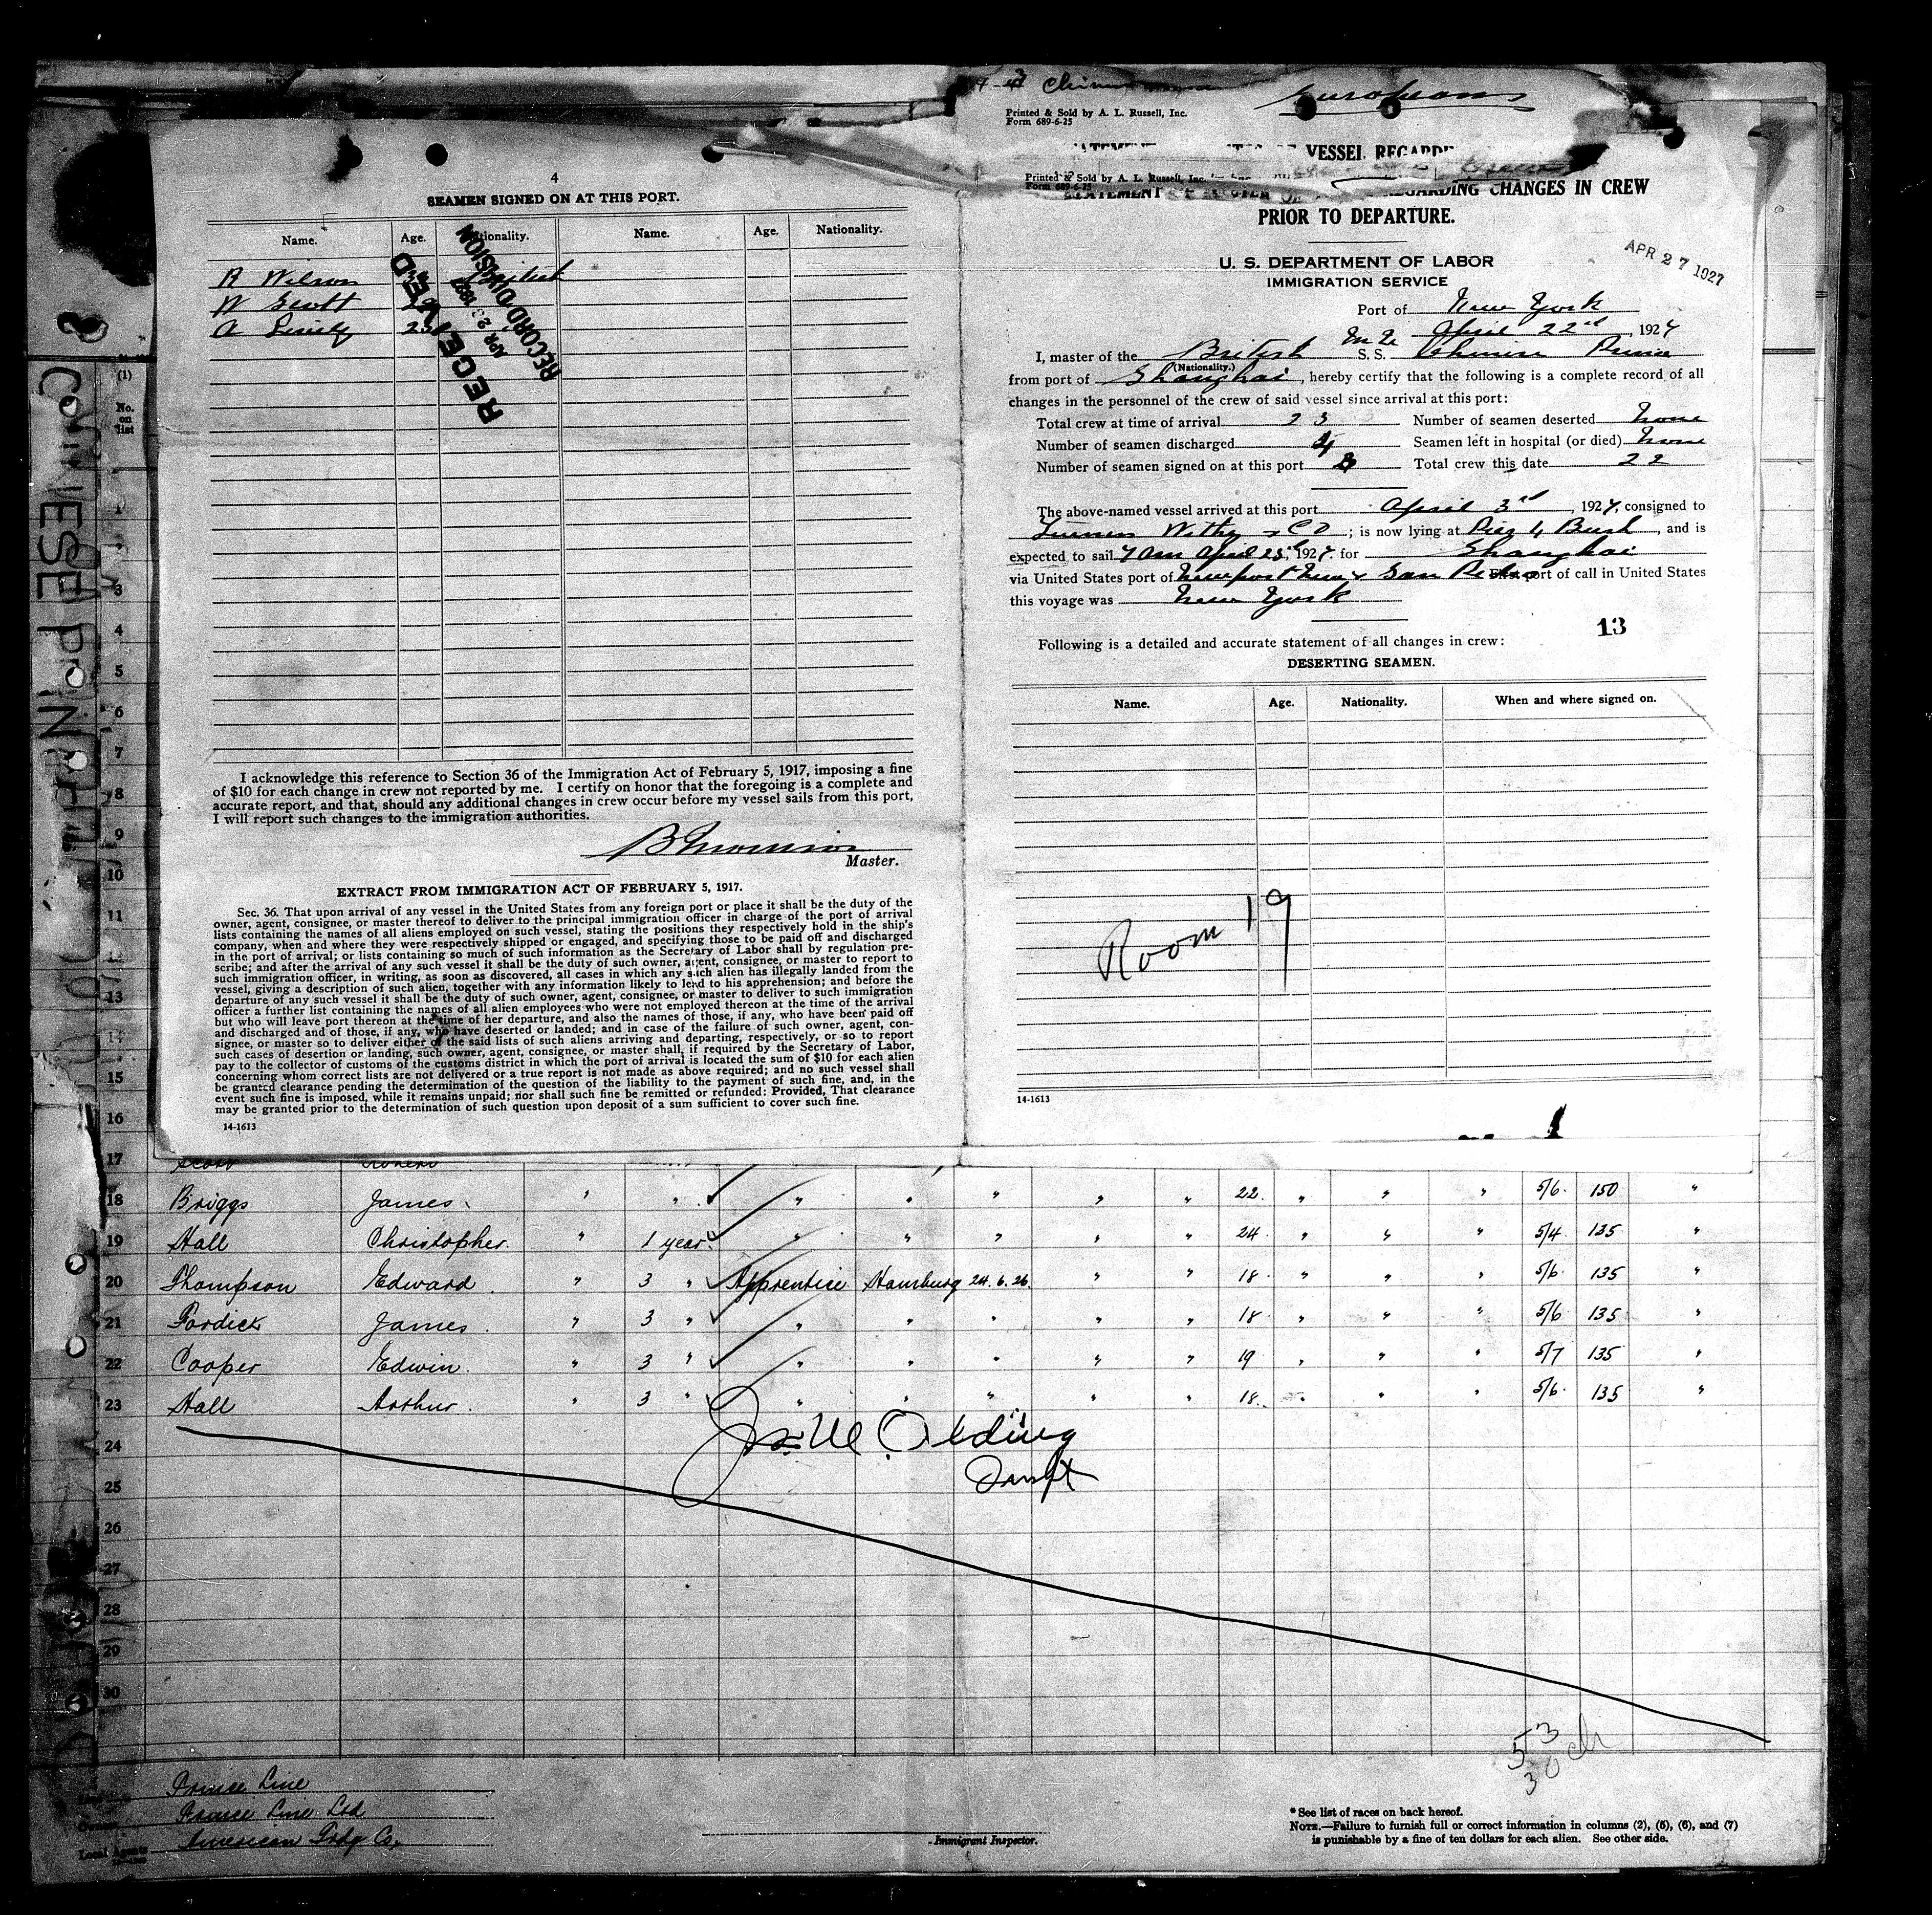 Europeans
Printed & Sold by A. L. Russell, Inc.
Form 689-6-25
VESSEL
Printed & Sold by A. L. Russell, Inc.
Form 689-6-25
STATEMENT REGARDING CHANGES IN CREW
PRIOR TO DEPARTURE.
U. S. DEPARTMENT OF LABOR
IMMIGRATION SERVICE
APR 27 1927
Port of New York
April 22nd, 1927
I, master of the British S. S. Chinese Prince
(Nationality.)
from port of Shanghai, hereby certify that the following is a complete record of all
changes in the personnel of the crew of said vessel since arrival at this port:
Total crew at time of arrival 23 Number of seamen deserted None
Number of seamen discharged 4 Seamen left in hospital (or died) None
Number of seamen signed on at this port 3 Total crew this date 22
The above-named vessel arrived at this port April 3rd, 1927, consigned to
Withy & Co; is now lying at Pier 4, Bush, and is
expected to sail 7 am April 23, 1927. for Shanghai
via United States port of Newport News & San Pedro First port of call in United States
this voyage was New York
13
Following is a detailed and accurate statement of all changes in crew:
DESERTING SEAMEN.
Name. Age. Nationality. When and where signed on.
Room 19
14-1613
4
SEAMEN SIGNED ON AT THIS PORT.
Name. Age. Nationality. Name. Age. Nationality.
R Wilson British
W Scott
A 23
RECEIVED
APR 23 1927
RECORD DIVISION
I acknowledge this reference to Section 36 of the Immigration Act of February 5, 1917, imposing a fine
of $10 for each change in crew not reported by me. I certify on honor that the foregoing is a complete and
accurate report, and that, should any additional changes in crew occur before my vessel sails from this port,
I will report such changes to the immigration authorities.
Master.
EXTRACT FROM IMMIGRATION ACT OF FEBRUARY 5, 1917.
Sec. 36. That upon arrival of any vessel in the United States from any foreign port or place it shall be the duty of the
owner, agent, consignee, or master thereof to deliver to the principal immigration officer in charge of the port of arrival
lists containing the names of all aliens employed on such vessel, stating the positions they respectively hold in the ship's
company, when and where they were respectively shipped or engaged, and specifying those to be paid off and discharged
in the port of arrival; or lists containing so much of such information as the Secretary of Labor shall by regulation pre-
scribe; and after the arrival of any such vessel it shall be the duty of such owner, agent, consignee, or master to report to
such immigration officer, in writing, as soon as discovered, all cases in which any such alien has illegally landed from the
vessel, giving a description of such alien, together with any information likely to lead to his apprehension; and before the
departure of any such vessel it shall be the duty of such owner, agent, consignee, or master to deliver to such immigration
officer a further list containing the names of all alien employees who were not employed thereon at the time of the arrival
but who will leave port thereon at the time of her departure, and also the names of those, if any, who have been paid off
and discharged and of those, if any, who have deserted or landed; and in case of the failure of such owner, agent, con-
signee, or master so to deliver either of the said lists of such aliens arriving and departing, respectively, or so to report
such cases of desertion or landing, such owner, agent, consignee, or master shall, if required by the Secretary of Labor,
pay to the collector of customs of the customs district in which the port of arrival is located the sum of $10 for each alien
concerning whom correct lists are not delivered or a true report is not made as above required; and no such vessel shall
be granted clearance pending the determination of the question of the liability to the payment of such fine, and, in the
event such fine is imposed, while it remains unpaid; nor shall such fine be remitted or refunded: Provided, That clearance
may be granted prior to the determination of such question upon deposit of a sum sufficient to cover such fine.
14-1613
CHINESE PRINCE
(1)
No.
on
list
1
2
3
4
5
6
7
8
9
10
11
12
13
14
15
16
17 Scott Robert
18 Briggs James " " " " " " " 22 " " " 5/6 150 "
19 Hall Christopher " 1 year " " " " " 24 " " " 5/4 135 "
20 Thompson Edward " 3 " Apprentice Hamburg 24.6.26 " " 18 " " " 5/6 135 "
21 Fordick James " 3 " " " " " " 18 " " " 5/6 135 "
22 Cooper Edwin " 3 " " " " " " 19 " " " 5/7 135 "
23 Hall Arthur " 3 " " " " " " 18 " " " 5/6 135 "
24
25
26
27
28
29
30
53
30 ch
Prince Line
Owners Prince Line Ltd
Local Agents American Trdg Co.
Immigrant Inspector.
* See list of races on back hereof.
NOTE.—Failure to furnish full or correct information in columns (2), (5), (6), and (7)
is punishable by a fine of ten dollars for each alien. See other side.